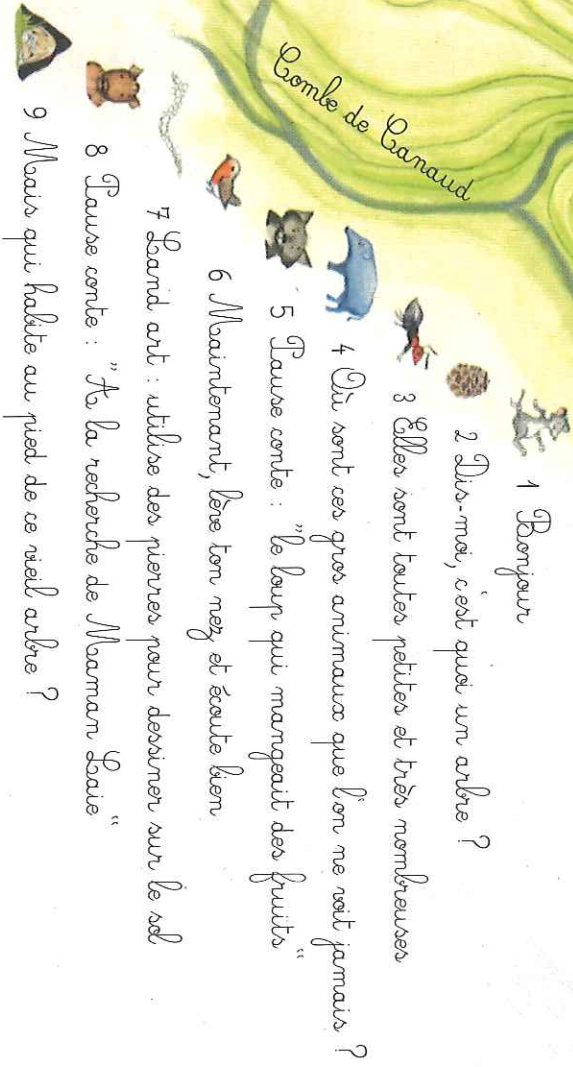 Combe de Canaud
1 Bonjour
2 Dis-moi, c'est quoi un arbre ?
3 Elles sont toutes petites et très nombreuses
4 Où sont ces gros animaux que l'on ne voit jamais ?
5 Pause conte : "le loup qui mangeait des fruits"
6 Maintenant, lève ton nez et écoute bien
7 Land art : utilise des pierres pour dessiner sur le sol
8 Pause conte : "A la recherche de Maman Laie"
9 Mais qui habite au pied de ce vieil arbre ?